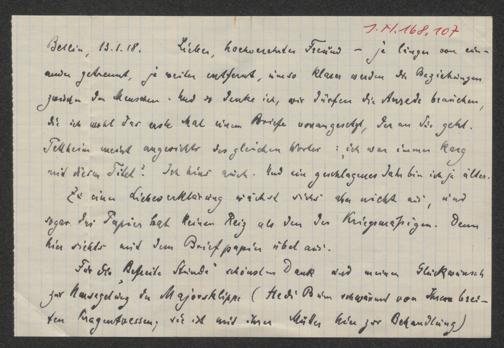 J.N. 168.107
Berlin, 13.1.18. Lieber, hochverehrter Freund – je länger von ein-
ander getrennt, je weiter entfernt, umso klarer werden die Beziehungen
zwischen den Menschen. Und so denke ich, wir dürfen die Anrede brauchen,
die ich wohl das erste Mal einem Briefe vorangesetzt, der an Sie geht.
meint angesichts des gleichen Wortes: ich war immer karg
mit diesem Titel! Ich bins auch. Und ein geschlagenes Jahr bin ich ja älter.
Zu einer Liebeserklärung wächst sichs aber nicht aus, und
sogar das Papier hat keinen Reiz als den des Kriegsmässigen. Denn
hier siehts mit dem Briefpapier übel aus.
Für die "Befreite Stunde" schönsten Dank und meinen Glückwunsch
zur der Majorsklippe (Hedi schwärmt von Ihren brei-
ten Kragentressen; sie ist mit ihrer Mutter hier zur Behandlung)